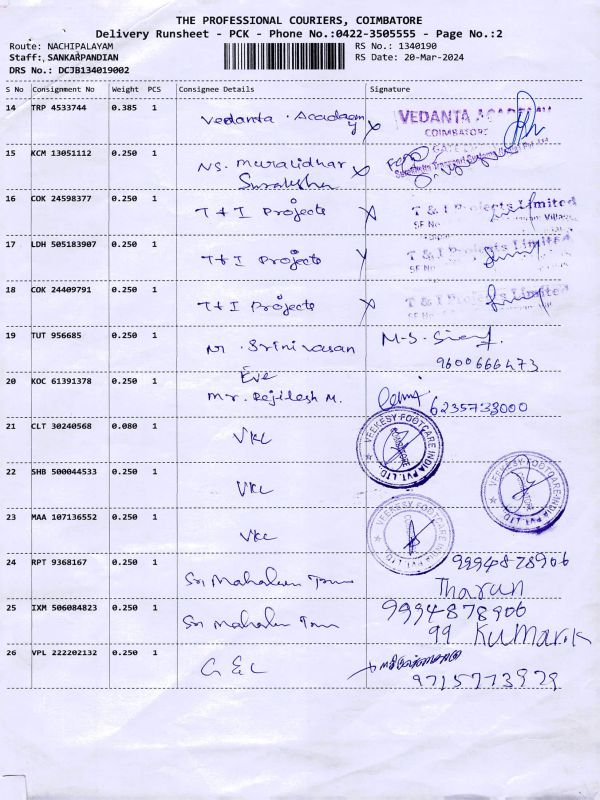 THE PROFESSIONAL COURIERS, COIMBATORE
Delivery Runsheet - PCK - Phone No.:0422-3505555 - Page No.:2
Route: NACHIPALAYAM
RS No.: 1340190
Staff: SANKARPANDIAN
RS Date: 20-Mar-2024
DRS No.: DCJB134019002
S No Consignment No Weight PCS Consignee Details Signature
14 TRP 4533744 0.385 1 Vedanta Academy VEDANTA ACADEMY
COIMBATORE
15 KCM 13051112 0.250 1 NS. Muralidhar
Suraksha
16 COK 24598377 0.250 1 T & I Projects T & I Projects Limited
SF No
17 LDH 505183907 0.250 1 T & I Projects T & I Projects Limited
SF No
18 COK 24409791 0.250 1 T & I Projects T & I Projects Limited
SF No
19 TUT 956685 0.250 1 N. Srinivasan M-S-
9600666473
20 KOC 61391378 0.250 1 Eve
Mr. Rejilesh M. 6235733000
21 CLT 30240568 0.080 1 VKC VEEKESY FOOTCARE INDIA PVT. LTD.
22 SHB 500044533 0.250 1 VKC VEEKESY FOOTCARE INDIA PVT. LTD.
23 MAA 107136552 0.250 1 VKC VEEKESY FOOTCARE INDIA PVT. LTD.
24 RPT 9368167 0.250 1 Sri 9994878906
Tharun
25 IXM 506084823 0.250 1 Sri 9994878906
99 KUMAR.K
26 VPL 222202132 0.250 1 G & C
9715773979